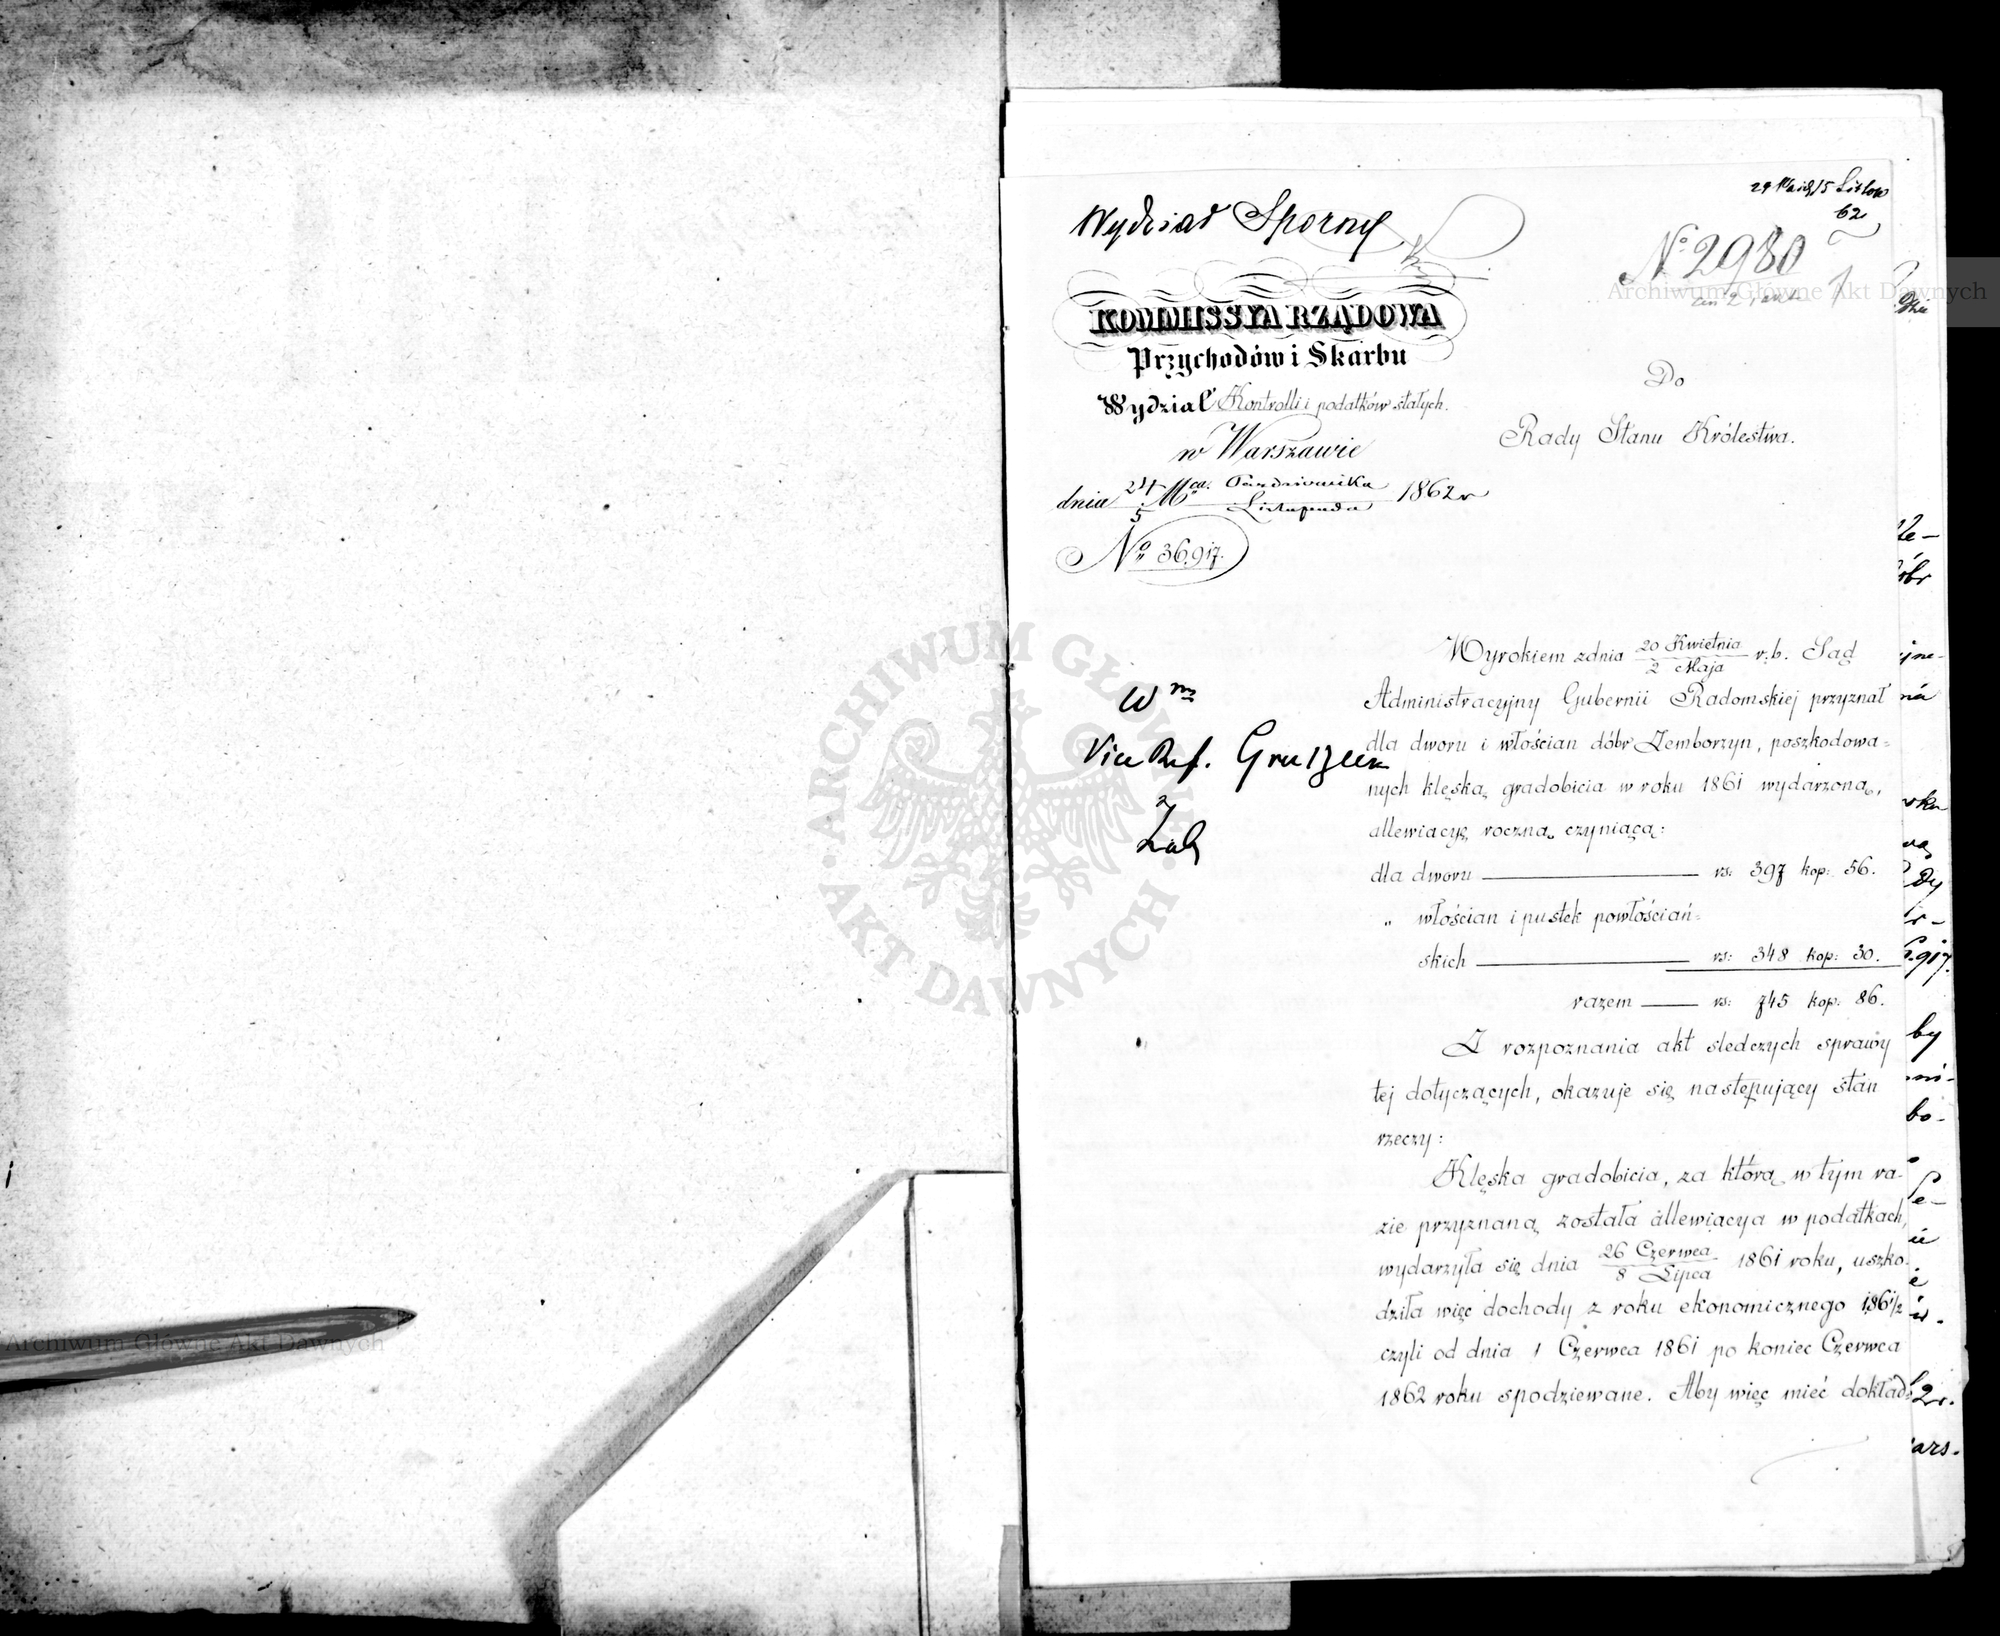 Wydział Sporny
62
N° 2980
KOMMISSYA RZĄDOWA
Przychodów i Skarbu
Wydział Kontrolli i podatków stałych.
w Warszawie
dnia 24/5 Mca Października/Listopada 1862 r
N° 36,917.
Do
Rady Stanu Królestwa.
Wm
Vice Ref.
Wyrokiem z dnia 20 Kwietnia/2 Maja r. b. Sąd
Administracyjny Gubernii Radomskiej przyznał
dla dworu i włościan dóbr Zemborzyn, poszkodowa=
nych klęską gradobicia w roku 1861 wydarzoną,
allewiacyę roczną czyniącą:
dla dworu rs: 397 kop: 56.
„ włościan i pustek powłościań=
skich rs: 348 kop: 30.
razem rs: 745 kop: 86.
Z rozpoznania akt sledczych sprawy
tej dotyczących, okazuje się następujący stan
rzeczy:
Klęska gradobicia, za którą w tym ra-
zie przyznaną została allewiacya w podatkach,
wydarzyła się dnia 26 Czerwca/8 Lipca 1861 roku, uszko-
dziła więc dochody z roku ekonomicznego 1861/2
czyli od dnia 1 Czerwca 1861 po koniec Czerwca
1862 roku spodziewane. Aby więc mieć dokład=
ARCHIWUM GŁÓWNE AKT DAWNYCH
Archiwum Główne Akt Dawnych
Archiwum Główne Akt Dawnych